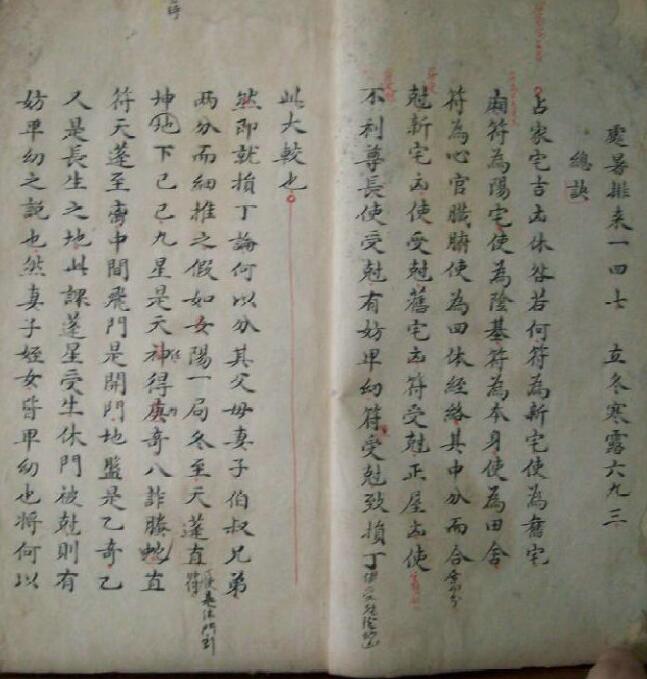 處暑排來一四七 立冬寒露六九三
總訣
占家宅吉凶休咎若何符為新宅使為舊宅
廂符為陽宅使為陰基符為本身使為田舍
符為心官臟腑使為四体經絡其中分而合
尅新宅凶使受尅舊宅凶符受尅正屋凶使
不利尊長使受尅有妨卑幼符受尅致損丁
此大較也
然即就損丁論何以分其父母妻子伯叔兄弟
兩分而細推之假如陽一局冬至天蓬直符
坤地下己己九星是天神得奇八詐螣蛇直
符天蓬至齋中間飛門是開門地盤是乙奇乙
又是長生之地此課蓬星受生休門被尅則有
妨卑幼之說也然妻子姪女皆卑幼也將何以